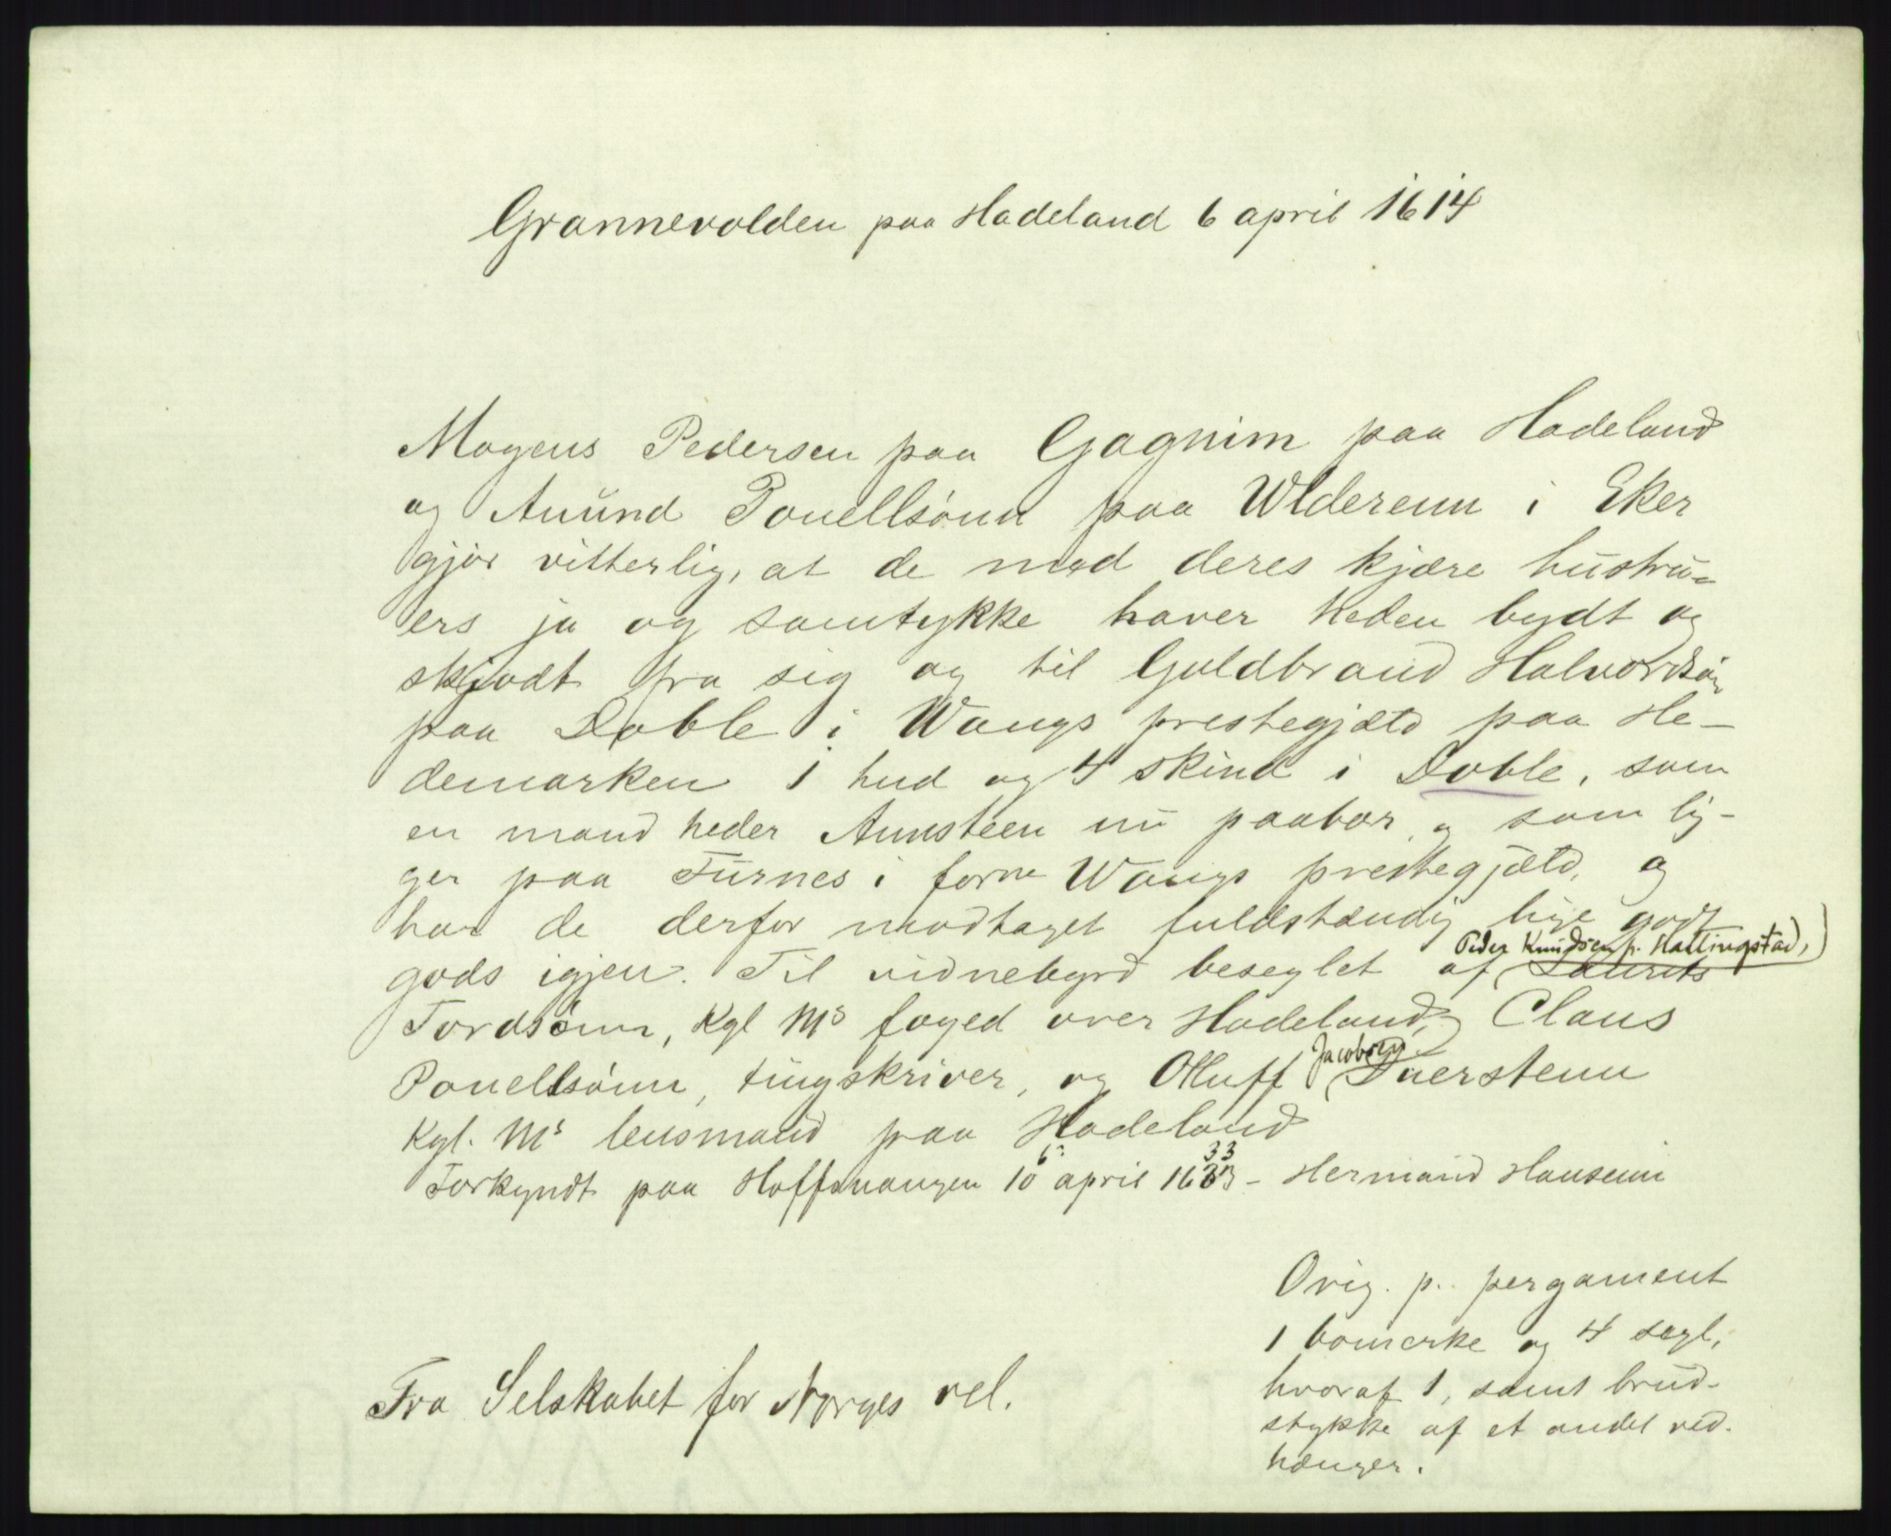 Grannevolden paa Hadeland 6 april 1614
Mogens Pedersen paa Gagnim paa Hadeland
og Amund Pouellsønn paa Wlderenn i Eker
gjør vitterlig, at de med deres kjære hustru-
ers ja og samtykke haver heden bydt og
skjødt fra sig og til Guldbrand Halvordsøn
paa Doble i Wangs prestegjæld paa He-
demarken 1 hud og 4 skind i Doble, som
en mand heder Aunsteen nu paabor og som lig-
ger paa Furnes i forne Wangs prestegjæld, og
har de derfor modtaget fuldstændig lige godt
gods igjen. Til vidnebyrd beseglet af Peder Knudsen p. Hallingstad, Laurits
Tordsønn, Kgl Ms foged over Hadeland, Claus
Pouellsønn, tingskriver, og Olluff Jacobsen Suerstenn
Kgl. Ms lensmand paa Hadeland
Forkyndt paa Hoffsvangen 10 april 1633 - Hermand Hansenn
Orig. p. pergament
1 bomerke og 4 segl,
hvoraf 1, samt brud-
stykke af et andet ved-
hænger.
Fra Selskabet for Norges vel.